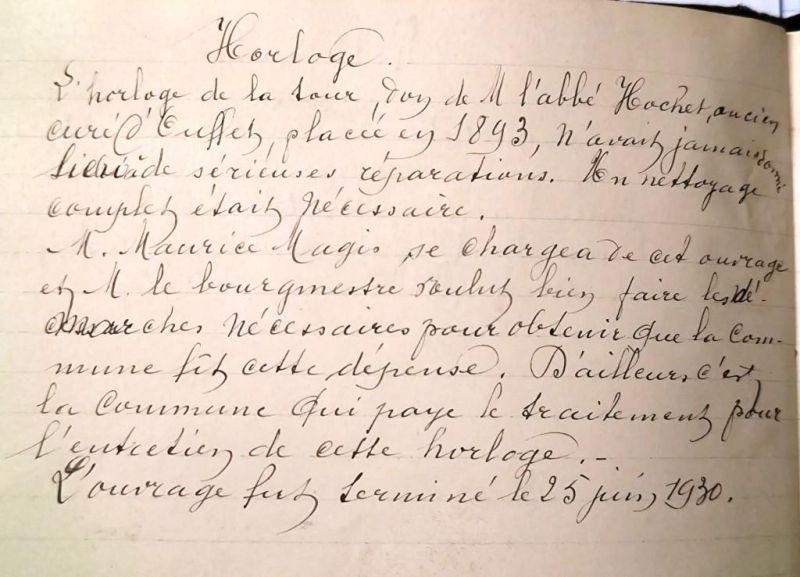 Horloge.
L'horloge de la tour, don de M l'abbé Hochet, ancien
curé d'Ouffet, placée en 1893, n'avait jamais donné
lieu à de sérieuses réparations. Un nettoyage
complet était nécessaire.
M. Maurice Magis se chargea de cet ouvrage
et M. le bourgmestre voulut bien faire les dé-
marches nécessaires pour obtenir que la com-
mune fît cette dépense. D'ailleurs, c'est
la commune qui paye le traitement pour
l'entretien de cette horloge. -
L'ouvrage fut terminé le 25 juin 1930.